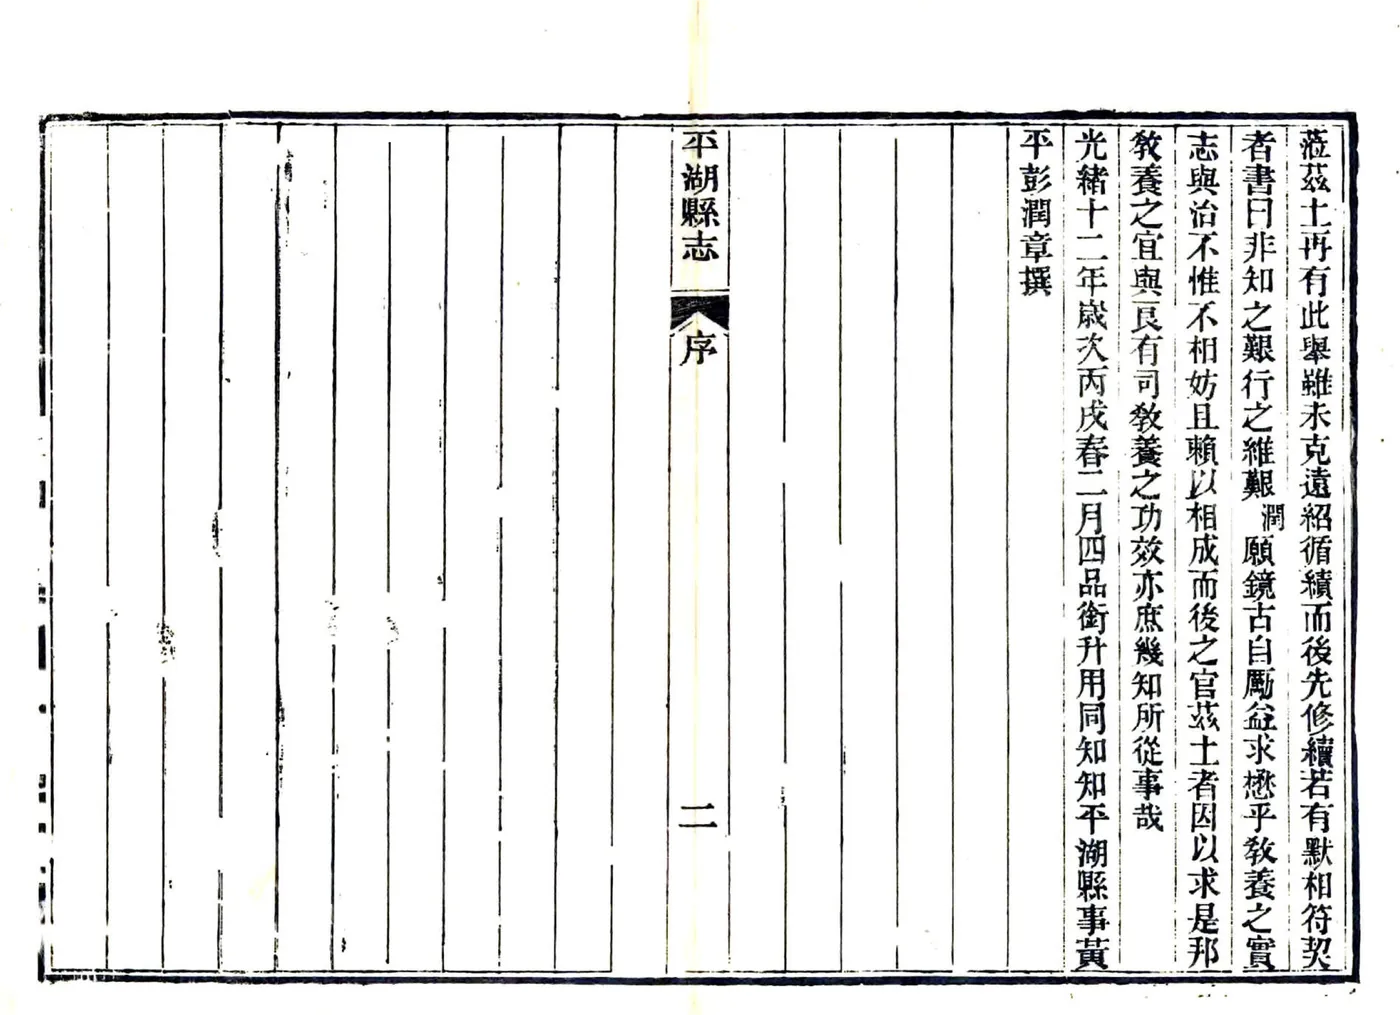 蒞茲土再有此舉雖未克遠紹循績而後先修續若有默相符契
者書曰非知之艱行之維艱潤願鏡古自勵益求懋乎敎養之實
志與治不惟不相妨且賴以相成而後之官茲土者因以求是邦
敎養之宜與良有司敎養之功效亦庶幾知所從事哉
光緒十二年歲次丙戌春二月四品銜升用同知知平湖縣事黃
平彭潤章撰
平湖縣志
序
二